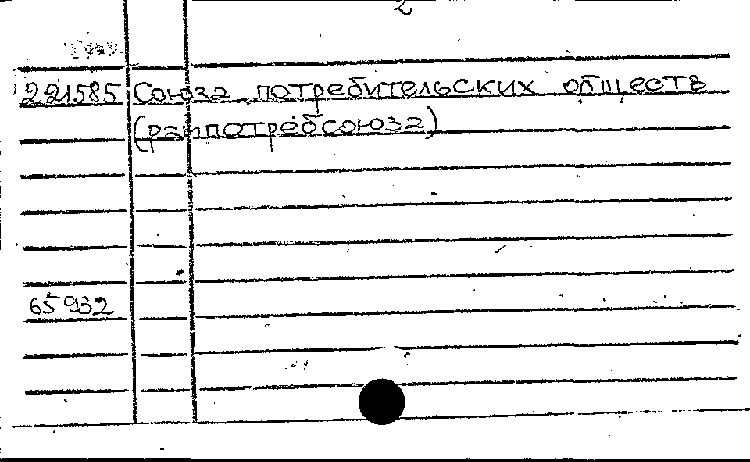 2
221585 Союза потребительских обществ
(райпотребсоюза)
65932